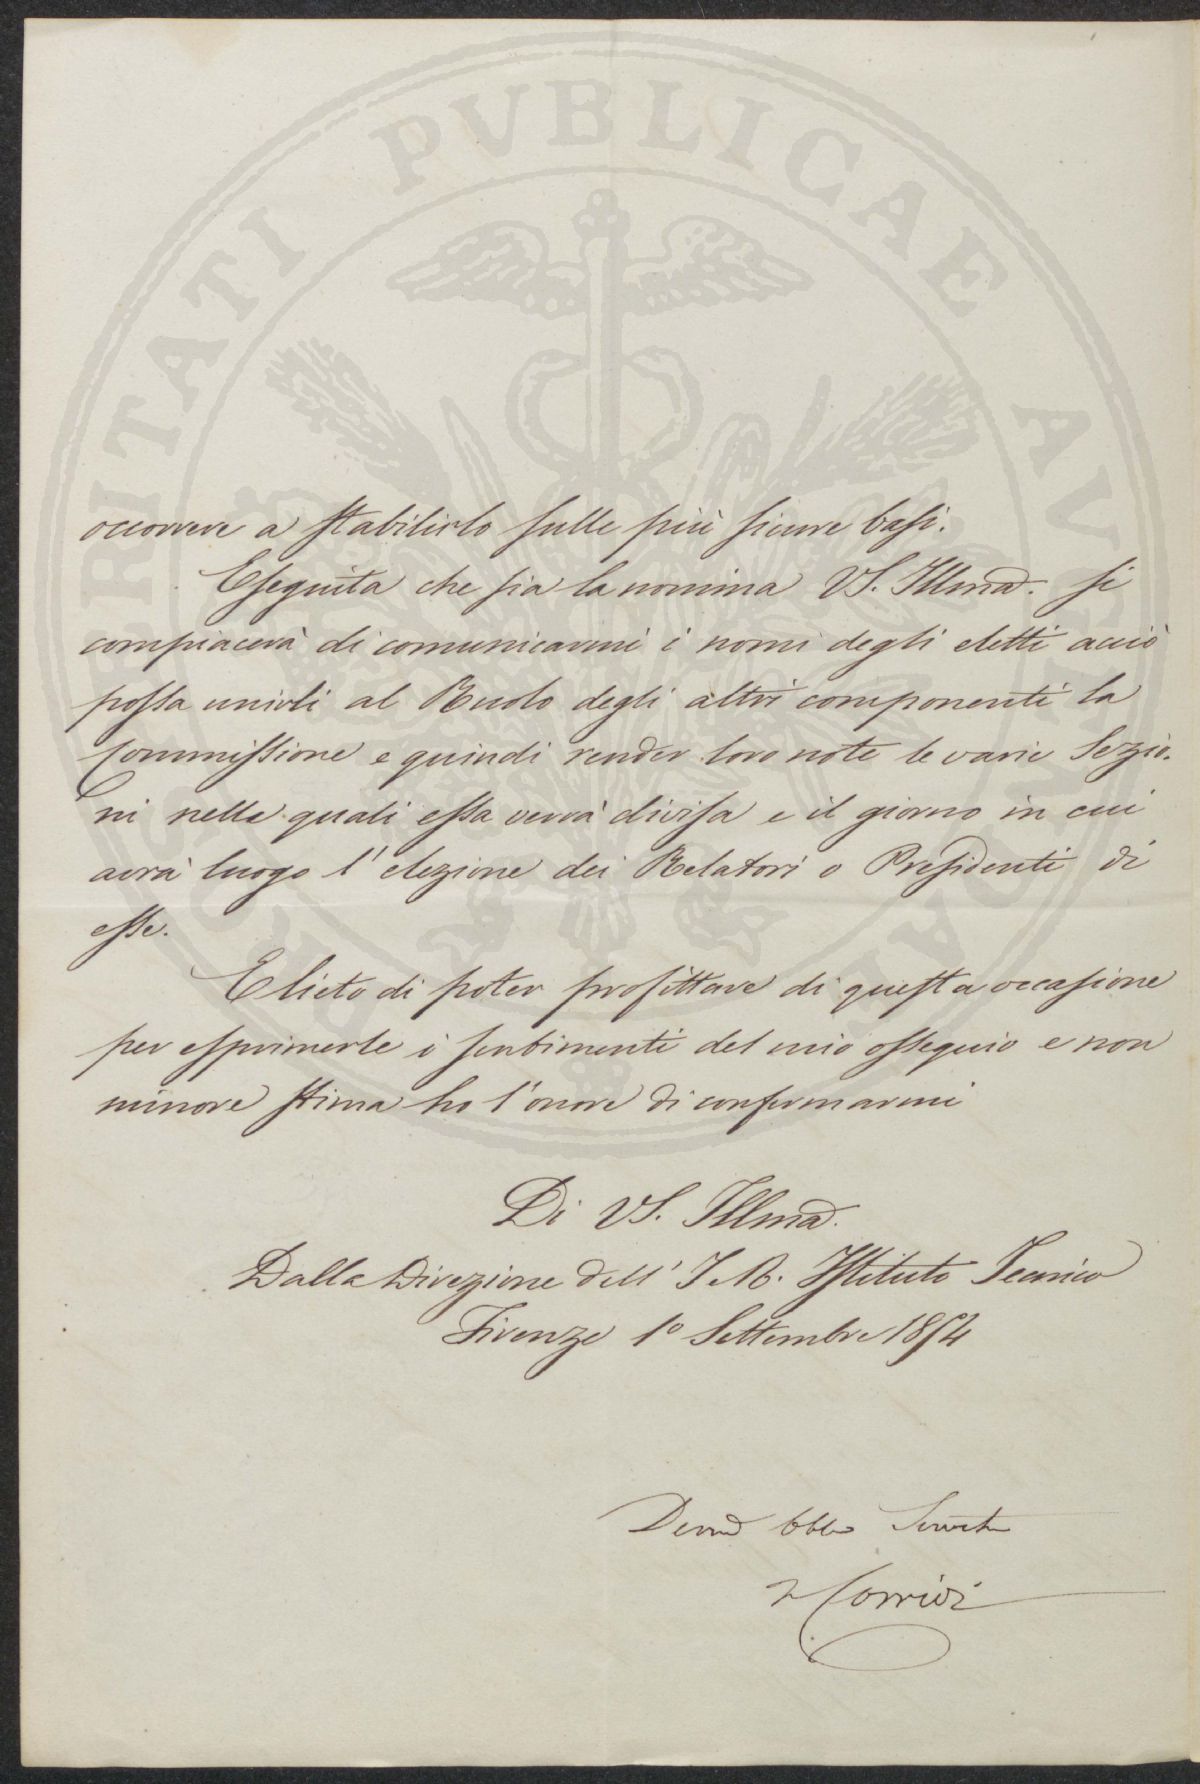 occorrere a stabilirlo sulle più sicure basi.
Eseguita che sia la nomina VS. Illma. si
compiacerà di comunicarmi i nomi degli eletti acciò
possa unirli al Ruolo degli altri componenti la
Commissione e quindi render loro note le varie Sezio-
ni nelle quali essa verrà divisa e il giorno in cui
avrà luogo l'elezione dei Relatori o Presidenti di
esse.
E lieto di poter profittare di questa occasione
per esprimerle i sentimenti del mio ossequio e non
minore stima ho l'onore di confermarmi
Di VS. Illma.
Dalla Direzione dell' I. e R. Istituto Tecnico
Firenze 1º Settembre 1854
Devmo Obbo Servitre
F Corridi
PUBLICAE